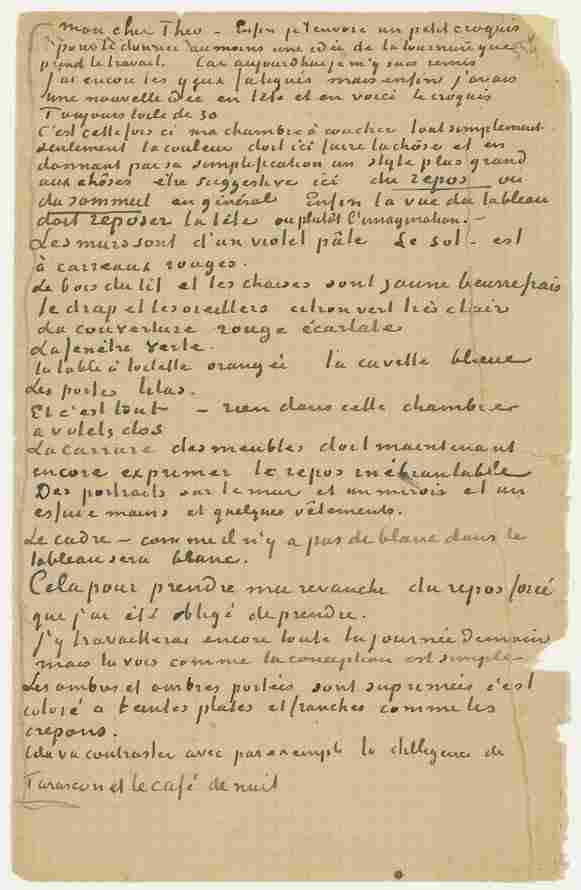 mon cher Theo – Enfin je t'envoie un petit croquis
pour te donner au moins une idée de la tournure que
prend le travail. Car aujourd'hui je m'y suis remis
J'ai encore les yeux fatigués mais enfin j'avais
une nouvelle idée en tête et en voici le croquis
Toujours toile de 30
C'est cette fois ci ma chambre à coucher tout simplement
seulement la couleur doit ici faire la chôse et en
donnant par sa simplification un style plus grand
aux chôses être suggestive ici du repos ou
du sommeil en général Enfin la vue du tableau
doit reposer la tête ou plutôt l'imagination. –
Les murs sont d'un violet pâle Le sol – est
à carreaux rouges.
Le bois du lit et les chaises sont jaune beurre frais
le drap et les oreillers citron vert très clair
La couverture rouge écarlate
La fenêtre verte.
la table à toilette orangée la cuvette bleue
Les portes lilas.
Et c'est tout – rien dans cette chambre
à volets clos
La carrure des meubles doit maintenant
encore exprimer le repos inébranlable
Des portraits sur le mur et un miroir et un
essuie mains et quelques vêtements.
Le cadre – comme il n'y a pas de blanc dans le
tableau sera blanc.
Cela pour prendre ma revanche du repos forcé
que j'ai été obligé de prendre.
J'y travaillerai encore toute la journée demain
mais tu vois comme la conception est simple
Les ombres et ombres portées sont suprimées c'est
coloré à teintes plates et franches comme les
crepons.
Cela va contraster avec par exemple la diligence de
Tarascon et le café de nuit